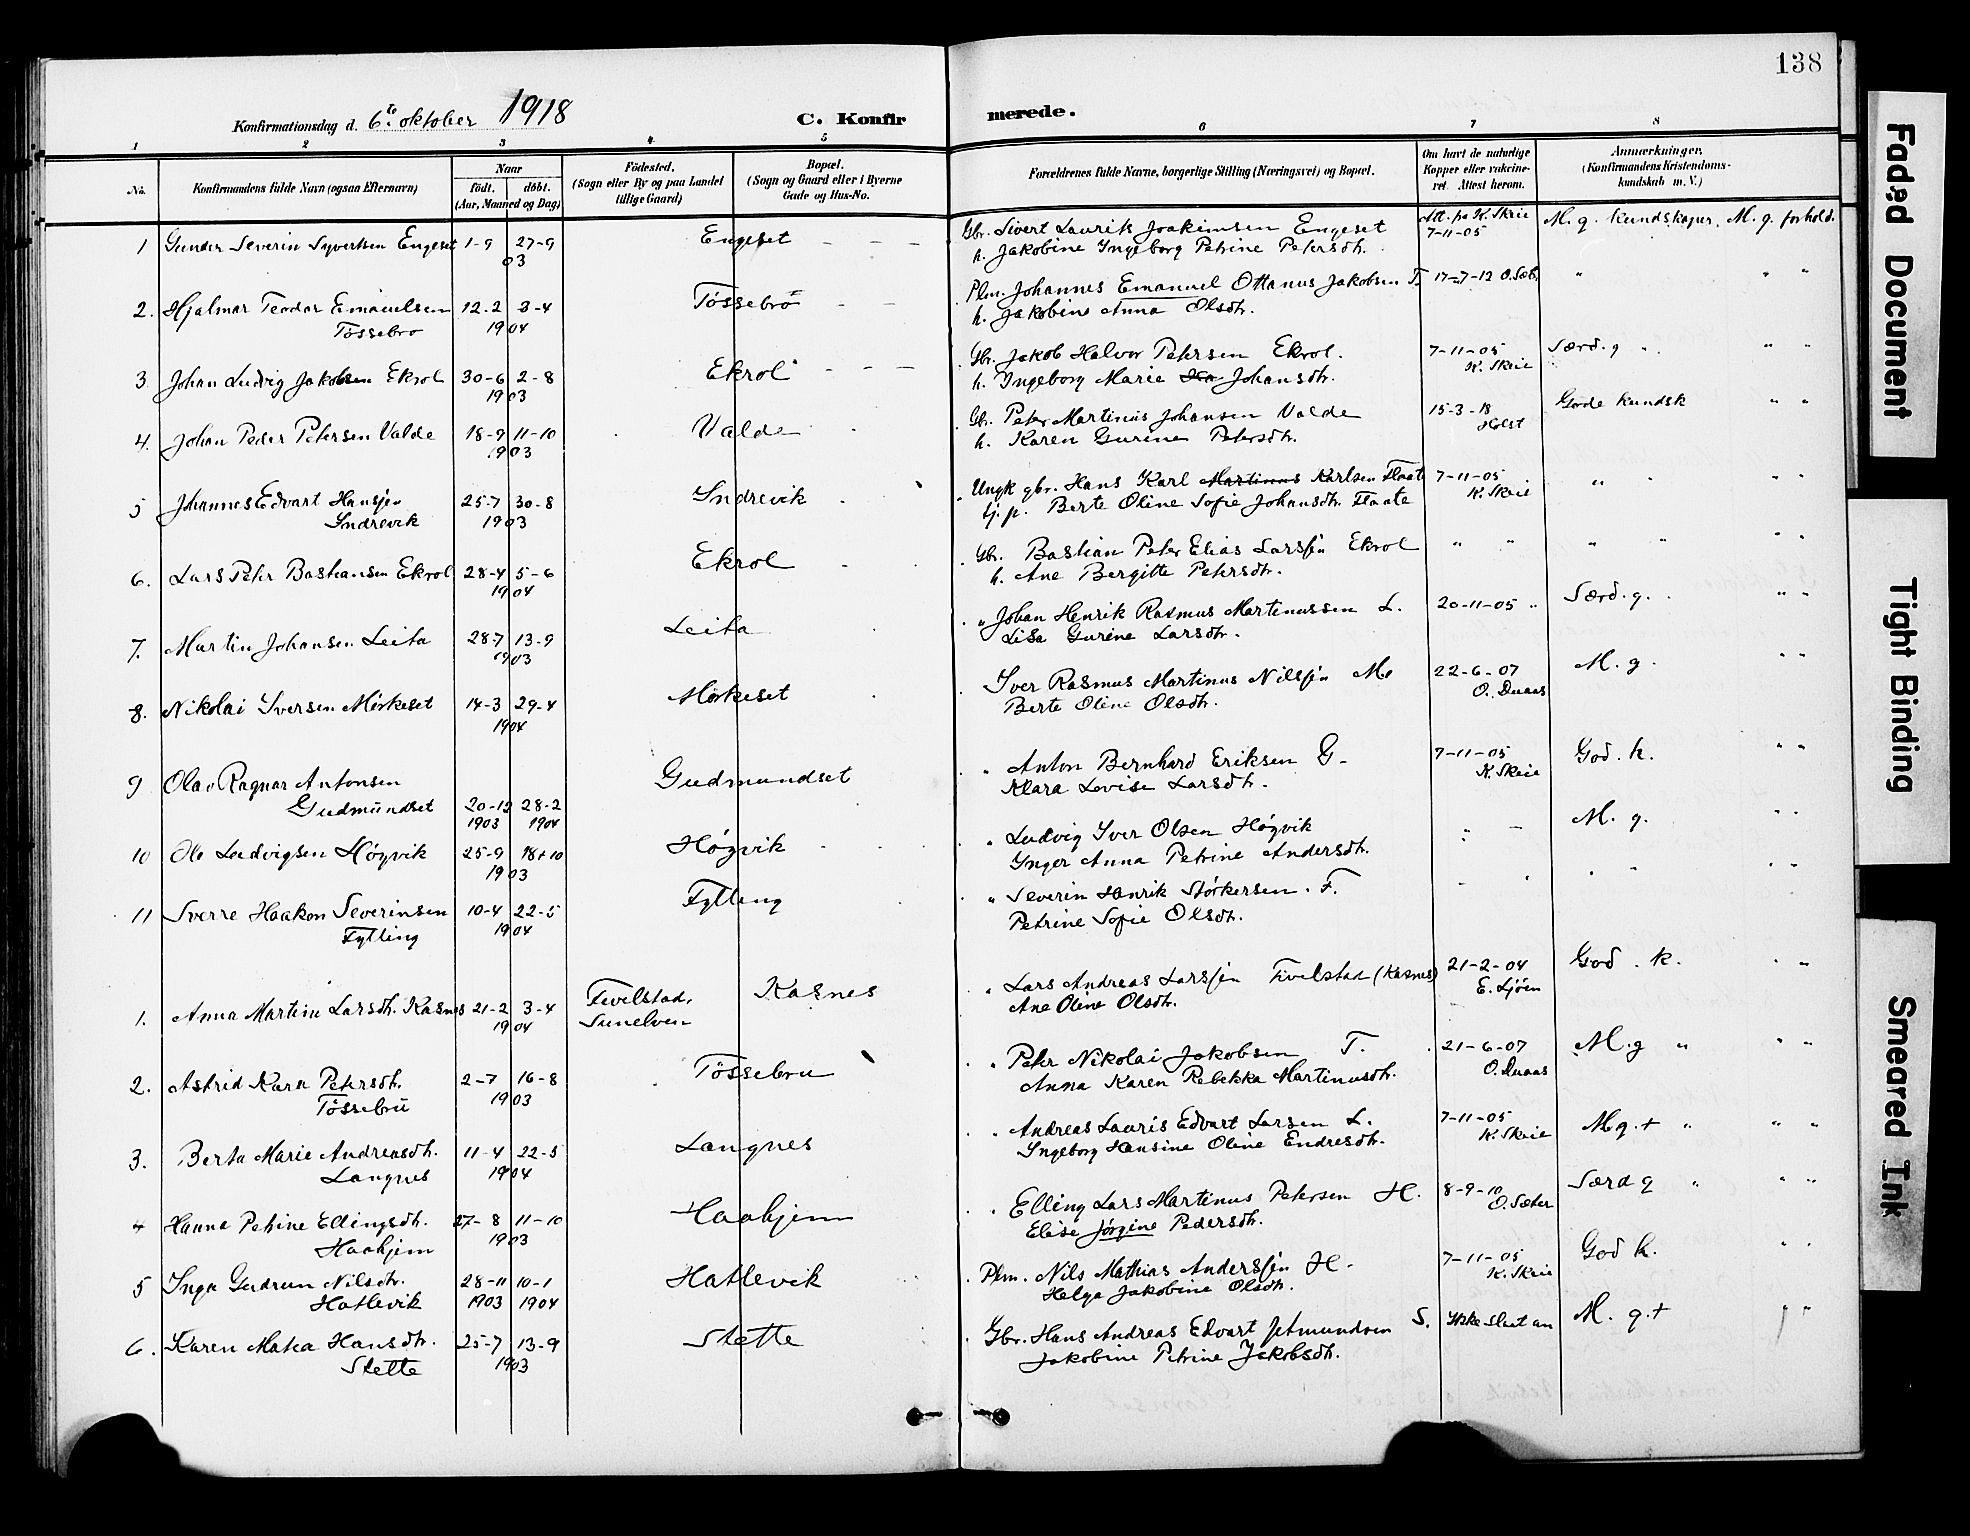 138
Konfirmationsdag d. 6te oktober 1918
C. Konfirmerede.
1 2 3 4 5 6 7 8
No. Konfirmandens fulde Navn (ogsaa Efternavn) Naar født. døbt. (Aar, Maaned og Dag) Fødested. (Sogn eller By og paa Landet tillige Gaard) Bopæl. (Sogn og Gaard eller i Byerne Gade og Hus-No. Forældrenes fulde Navne, borgerlige Stilling (Næringsvei) og Bopæl. Om havt de naturlige Kopper eller vakcineret. Attest herom. Anmærkninger, (Konfirmandens Kristendomskundskab m. V.)
1 Gunder Severin Syvertsen Engeset 1-9 27-9 Engeset Gbr. Sivert Laurits Joakimsen Engeset Att. fra K. Skeie M. g. kundskaper. M. g. forhold.
03 h. Jakobine Ingeborg Petrine Petersdtr. 7-11-05
2. Hjalmar Teodor Emanuelsen 12-2 3-4 Tössebro Plm. Johannes Emanuel Ottanus Jakobsen T. 17-7-12 O. Sæt. " " "
Tössebro 1904 h. Jakobine Anna Olsdtr.
3 Johan Ludvig Jakobsen Ekrol 30-6 2-8 Ekrol Gbr. Jakob Halvor Petersen Ekrol. 7-11-05 Særd. g " "
1903 h. Ingeborg Marie Johansdtr. K. Skeie
4. Johan Peder Petersen Valde 18-9 11-10 Valde Gbr. Peter Martinus Johansen Valde 15-3-18 Gode kundsk " "
1903 h. Karen Gurine Petersdtr. Holst
5 Johannes Edvart Hansen 25-7 30-8 Indrevik Ungk gbr. Hans Karl Martinus Karlsen Flaate 7-11-05 " " "
Indrevik 1903 tj. p. Berte Oline Sofie Johansdtr. Flaate K. Skeie
6. Lars Petr Bastiansen Ekrol 28-4 5-6 Ekrol Gbr. Bastian Peter Elias Larsen Ekrol " " " " " "
1904 h. Ane Bergitte Petersdtr.
7. Martin Johansen Leita 28-7 13-9 Leita " Johan Henrik Rasmus Martinussen L. 20-11-05 " Særd. g. " "
1903 Lisa Gurine Larsdtr.
8. Nikolai Iversen Mörkeset 14-3 29-4 Mörkeset Iver Rasmus Martinus Nilsen Mö 22-6-07 M. g. " "
1904 Berte Oline Olsdtr. O. Duaas
9 Olav Ragnar Antonsen Gudmundset " Anton Bernhard Eriksen G- 7-11-05 God. k. " "
Gudmundset 20-12 28-2 Klara Lovise Larsdtr. K. Skeie
1903 1904
10 Ole Ludvigsen Högvik 25-9 18-10 Högvik " Ludvig Iver Olsen Högvik M. g. " "
1903 Inger Anna Petrine Andersdtr.
11 Sverre Haakon Severinsen 10-4 22-5 Fylling " Severin Henrik Störkersen. F. " "
Fylling 1904 Petrine Sofie Olsdtr.
1. Anna Martine Larsdtr. Kasnes 21-2 3-4 Fivelstad, Kasnes " Lars Andreas Larsen Fivelstad (Kasnes) 21-2-04 God. k. " "
1904 Sunelven Ane Oline Olsdtr. E. Sjöen
2. Astrid Kara Petersdtr. 2-7 16-8 Tössebru " Petr Nikolai Jakobsen T. 21-6-07 M. g " " "
Tössebru 1903 Anna Karen Rebekka Martinusdtr. O. Duaas
3. Berta Marie Andreasdtr. 11-4 22-5 Langnes " Andreas Lauris Edvart Larsen L. 7-11-05 M g. + " " "
Langnes 1904 Ingeborg Hansine Oline Endresdtr. K. Skeie
4 Hanna Petrine Ellingsdtr. 27-8 11-10 Haahjem " Elling Lars Martinus Petersen H. 8-9-10 Særd g " " "
Haahjem 1903 Elise Jörgine Pedersdtr. O. Sæter
5 Inga Gudrun Nilsdtr. 28-11 10-1 Hatlevik Plm. Nils Mathias Andersen H. 7-11-05 God k. " "
Hatlevik 1903 1904 Helga Jakobine Olsdtr. K. Skeie
6. Karen Matea Hansdtr. 25-7 13-9 Stette Gbr. Hans Andreas Edvart Amundsen S. Ikke slaat an M. g. + " "
Stette 1903 Jakobine Petrine Jakobsdtr.
Faded Document
Tight Binding
Smeared Ink